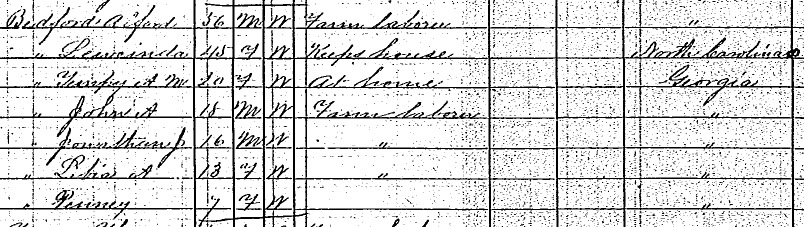 Bedford Alford 56 M W Farm laborer "
" Lewcinda 45 F W Keeps house North Carolina
" Tempy A M 20 F W At home Georgia
" John A 18 M W Farm laborer "
" Jonathan J 16 M W " "
" Libia A 13 F W " "
" Penney 7 F W "